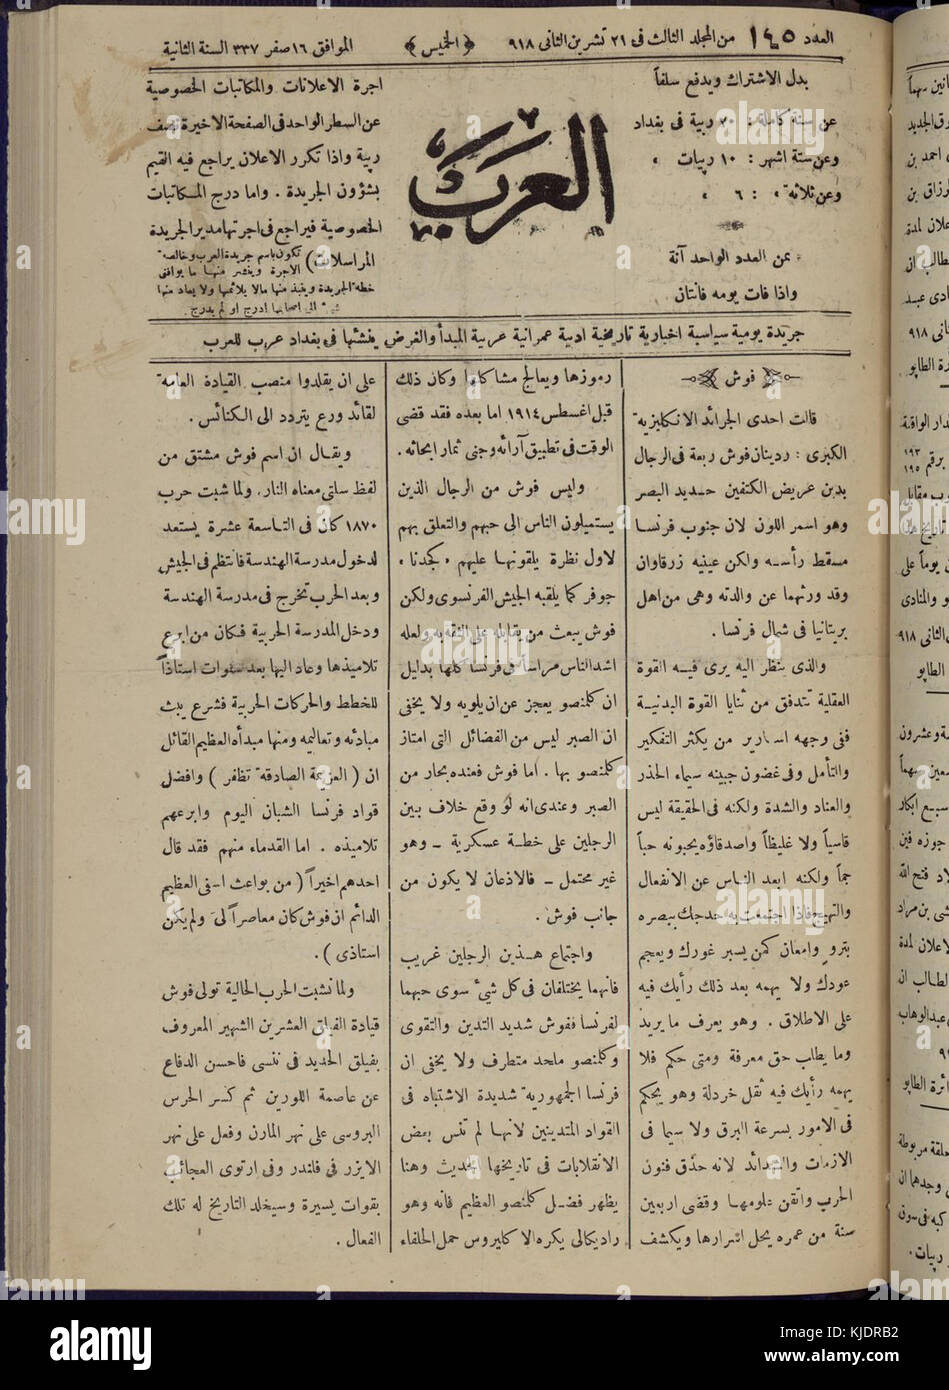 العدد ١٤٥ من المجلد الثالث في ٢١ تشرين الثاني ٩١٨ ﴿ الخميس ﴾ الموافق ١٦ صفر ٣٣٧ السنة الثانية
بدل الاشتراك ويدفع سلفاً
عن سنة كاملة : ٢٠ ربية في بغداد
وعن ستة اشهر : ١٠ ربيات »
وعن ثلاثة » : ٦ »
ثمن العدد الواحد آنة
واذا فات يومه فانتان
العرب
اجرة الاعلانات والمكاتبات الخصوصية
عن السطر الواحد في الصفحة الاخيرة نصف
ربية واذا تكرر الاعلان يراجع فيه القيم
بشؤون الجريدة . واما درج المكاتبات
الخصوصية فيراجع في اجرتها مدير الجريدة
المراسلات ) تكون باسم جريدة العرب وخالصة
الاجرة وينشر منها ما يوافق
خطة الجريدة وينبذ منها مالا يلائمها ولا يعاد منها
شيء الى اصحابها ادرج او لم يدرج
جريدة يومية سياسية اخبارية تاريخية ادبية عمرانية عربية المبدأ والغرض ينشئها في بغداد عرب للعرب
فوش
قالت احدى الجرائد الانكليزية
الكبرى : ردينان فوش ربعة في الرجال
بدين عريض الكتفين حديد البصر
وهو اسمر اللون لان جنوب فرنسا
مسقط رأسه ولكن عينيه زرقاوان
وقد ورثهما عن والدته وهي من اهل
بريتانيا في شمال فرنسا .
والذي ينظر اليه يرى فيه القوة
العقلية تتدفق من ثنايا القوة البدنية
ففي وجهه اسارير من يكثر التفكير
والتأمل وفي غضون جبينه سيماء الحذر
والعناد والشدة ولكنه في الحقيقة ليس
قاسياً ولا غليظاً واصدقاؤه يحبونه حباً
جماً ولكنه ابعد الناس عن الانفعال
والتهيج فاذا اجتمعت به حدجك ببصره
بتروٍ وامعان كمن يسبر غورك ويعجم
عودك ولا يهمه بعد ذلك رأيك فيه
على الاطلاق . وهو يعرف ما يريد
وما يطلب حق معرفة ومتى حكم فلا
يهمه رأيك فيه ثقل خردلة وهو يحكم
في الامور بسرعة البرق ولا سيما في
الازمات والشدائد لانه حذق فنون
الحرب واتقن علومها وقضى اربعين
سنة من عمره يحل اسرارها ويكشف
رموزها ويعالج مشاكلها وكان ذلك
قبل اغسطس ١٩١٤ اما بعده فقد قضى
الوقت في تطبيق آرائه وجنى ثمار ابحاثه .
وليس فوش من الرجال الذين
يستميلون الناس الى حبهم والتعلق بهم
لاول نظرة يلقونها عليهم « كجدنا »
جوفر كما يلقبه الجيش الفرنسوي ولكن
فوش يبعث من يقابله على الثقة به ولعله
اشد الناس مراساً في فرنسا كلها بدليل
ان كلمنصو يعجز عن ان يلويه ولا يخفى
ان الصبر ليس من الفضائل التي امتاز
كلمنصو بها . اما فوش فعنده بحار من
الصبر وعندي انه لو وقع خلاف بين
الرجلين على خطة عسكرية – وهو
غير محتمل – فالاذعان لا يكون من
جانب فوش .
واجتماع هذين الرجلين غريب
فانهما يختلفان في كل شيء سوى حبهما
لفرنسا ففوش شديد التدين والتقوى
وكلمنصو ملحد متطرف ولا يخفى ان
فرنسا الجمهورية شديدة الاشتباه في
القواد المتدينين لانها لم تنس بعض
الانقلابات في تاريخها الحديث وهنا
يظهر فضل كلمنصو العظيم فانه وهو
راديكالي يكره الاكليروس حمل الحلفاء
على ان يقلدوا منصب القيادة العامة
لقائد ورع يتردد الى الكنائس .
ويقال ان اسم فوش مشتق من
لفظ سلتي معناه النار . ولما شبت حرب
١٨٧٠ كان في التاسعة عشرة يستعد
لدخول مدرسة الهندسة فانتظم في الجيش
وبعد الحرب تخرج في مدرسة الهندسة
ودخل المدرسة الحربية فكان من ابرع
تلاميذها وعاد اليها بعد سنوات استاذاً
للخطط والحركات الحربية فشرع يبث
مبادئه وتعاليمه ومنها مبدأه العظيم القائل
ان ( العزيمة الصادقة تظفر ) وافضل
قواد فرنسا الشبان اليوم وابرعهم
تلاميذه . اما القدماء منهم فقد قال
احدهم اخيراً ( من بواعث اسفي العظيم
الدائم ان فوش كان معاصراً لي ولم يكن
استاذي ) .
ولما نشبت الحرب الحالية تولى فوش
قيادة الفيلق العشرين الشهير المعروف
بفيلق الحديد في ننسي فاحسن الدفاع
عن عاصمة اللورين ثم كسر الحرس
البروسي على نهر المارن وفعل على نهر
الايزر في فلندر وفي ارتوى العجائب
بقوات يسيرة وسيخلد التاريخ له تلك
الفعال .
alamy
Image ID: KJDRB2
www.alamy.com